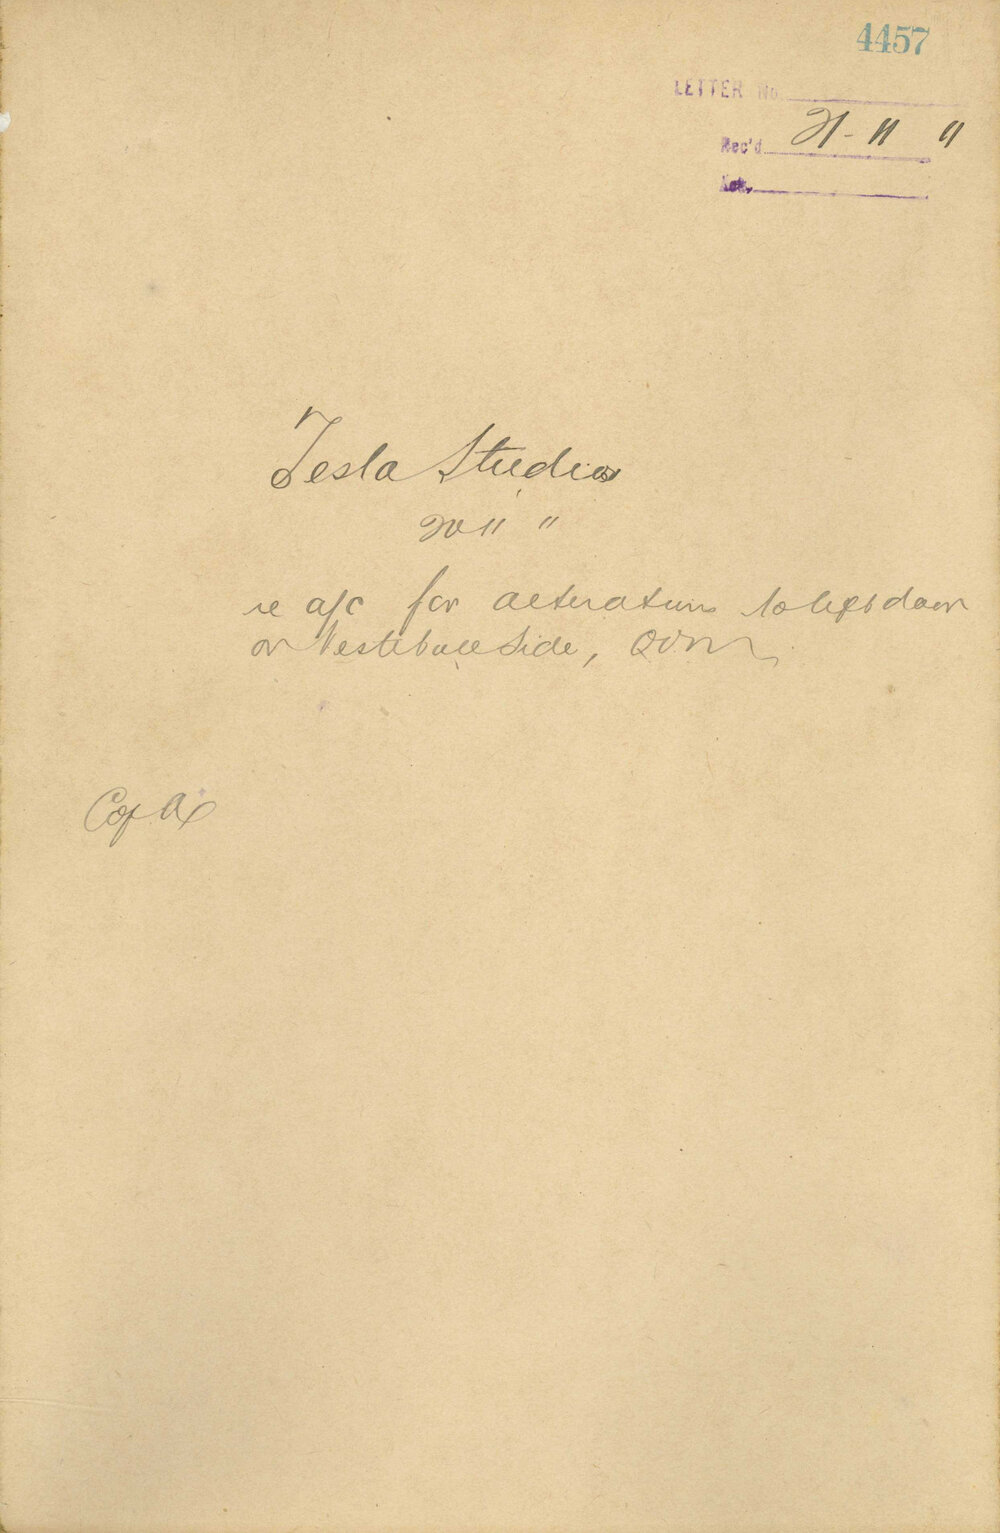 4457
LETTER No.
Rec'd 21-11 11
Ack.
Tesla Studios
20 11 11
re a/c for alterations to lift door
on Vestibule Side, QVM